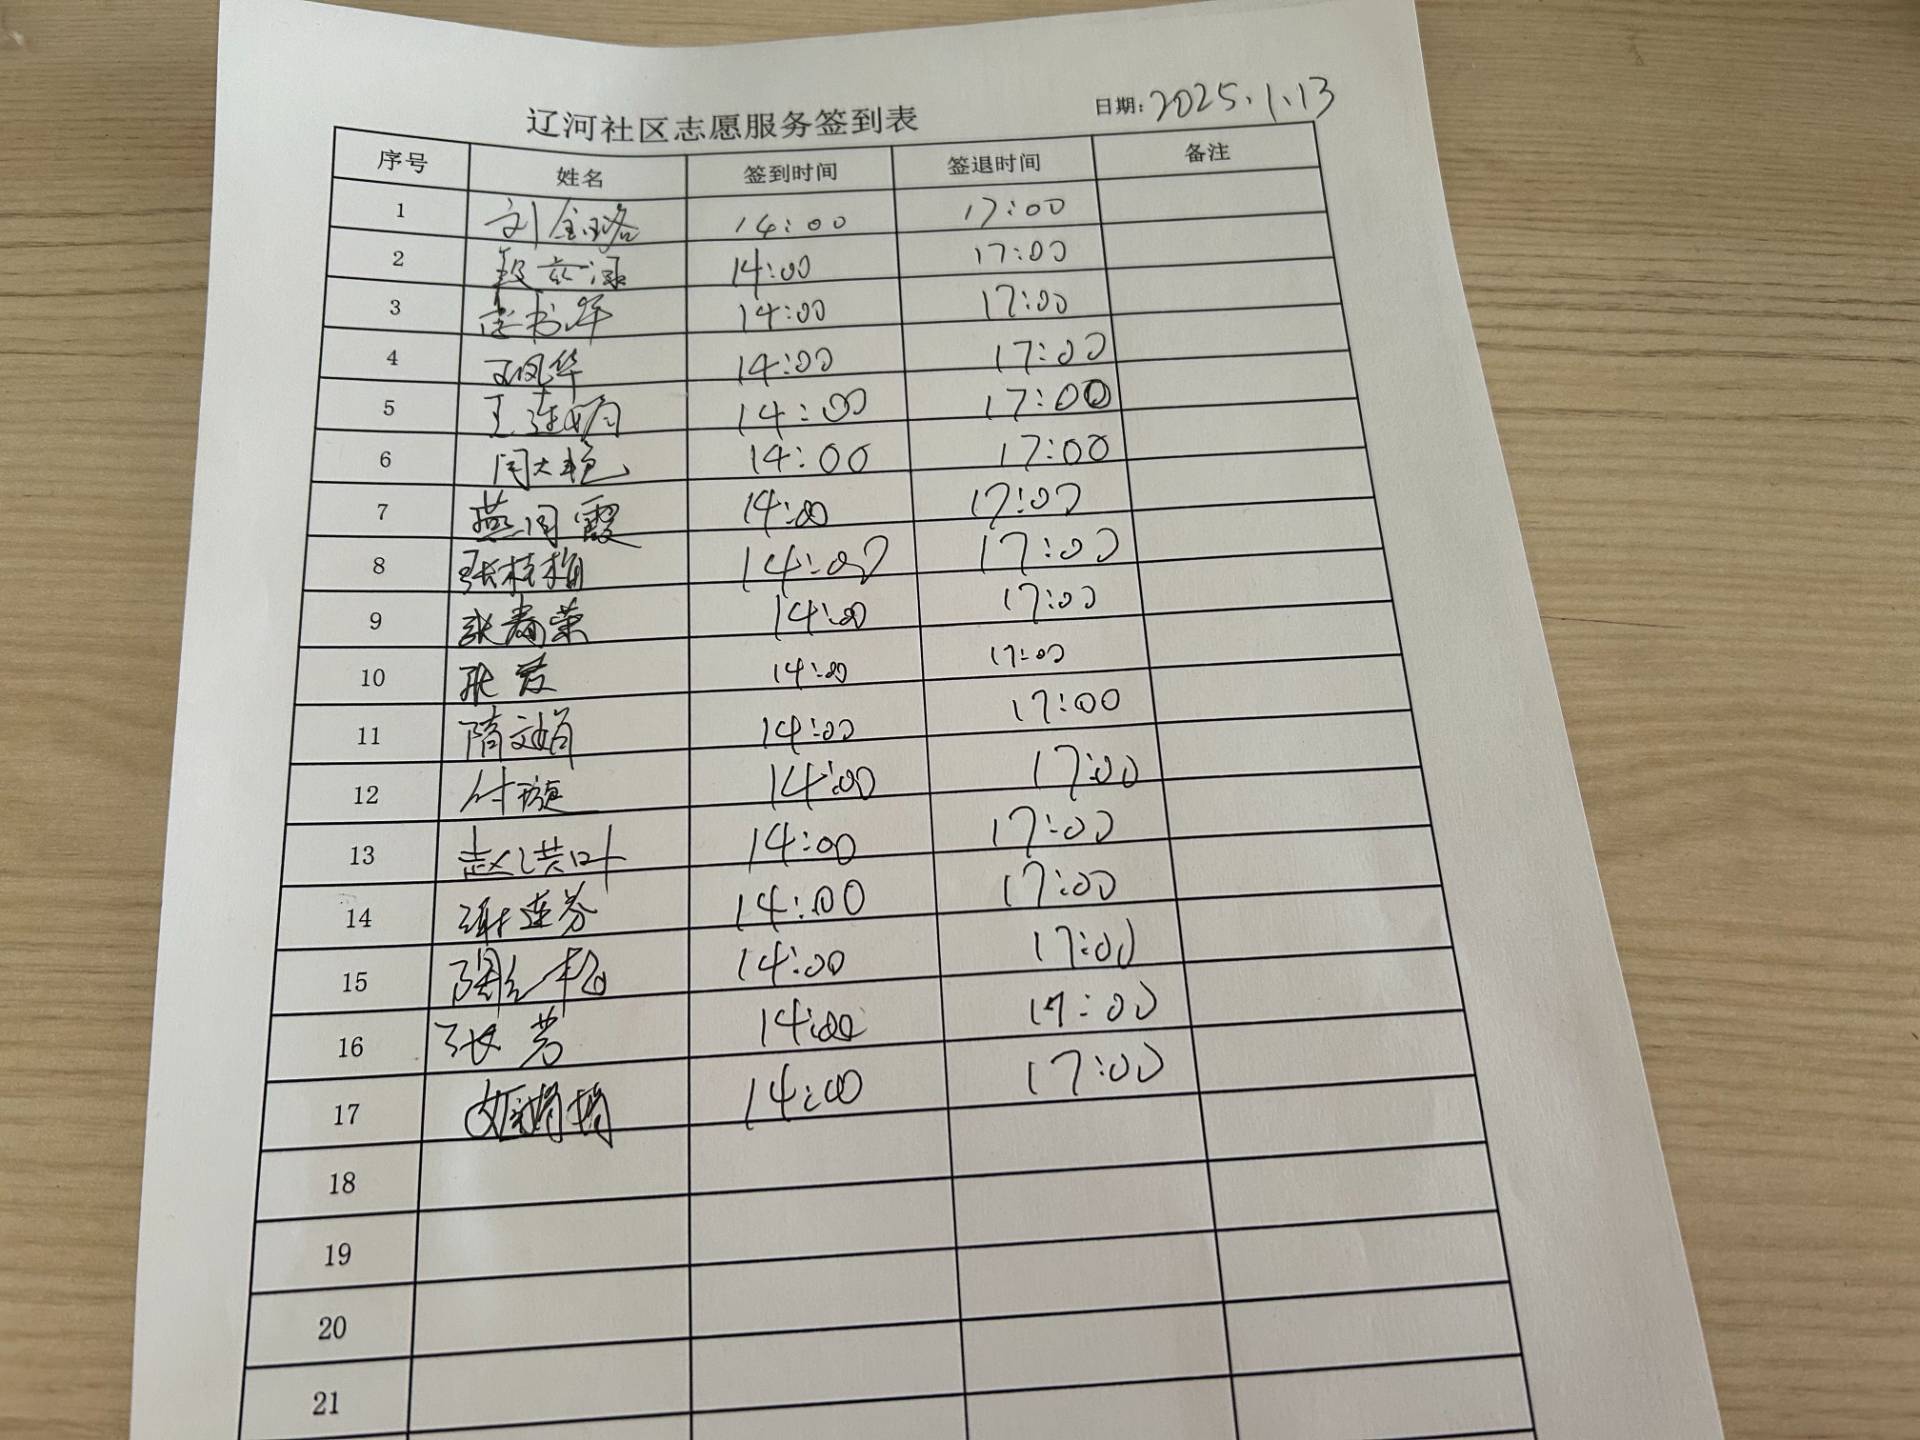 辽河社区志愿服务签到表 日期:2025.1.13
序号 姓名 签到时间 签退时间 备注
1 刘金璐 14:00 17:00
2 14:00 17:00
3 李书华 14:00 17:00
4 王凤华 14:00 17:00
5 王莲娟 14:00 17:00
6 闫大艳 14:00 17:00
7 燕闰霞 14:00 17:00
8 张桂梅 14:00 17:00
9 张春荣 14:00 17:00
10 张 14:00 17:00
11 隋文娟 14:00 17:00
12 付璇 14:00 17:00
13 赵洪叶 14:00 17:00
14 谢莲芬 14:00 17:00
15 14:00 17:00
16 张芳 14:00 17:00
17 14:00 17:00
18
19
20
21